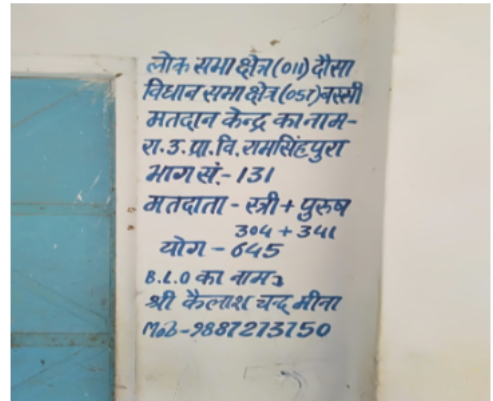 लोक सभा क्षेत्र (011) दौसा
विधान सभा क्षेत्र (057) बस्सी
मतदान केन्द्र का नाम-
रा.उ.प्रा.वि. रामसिंहपुरा
भाग सं.- 131
मतदाता - स्त्री + पुरुष
304 + 341
योग - 645
B.L.O का नाम
श्री कैलाश चन्द मीना
Mob-9887273750